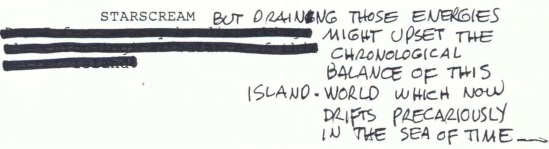 STARSCREAM BUT DRAINING THOSE ENERGIES
MIGHT UPSET THE
CHRONOLOGICAL
BALANCE OF THIS
ISLAND-WORLD WHICH NOW
DRIFTS PRECARIOUSLY
IN THE SEA OF TIME —